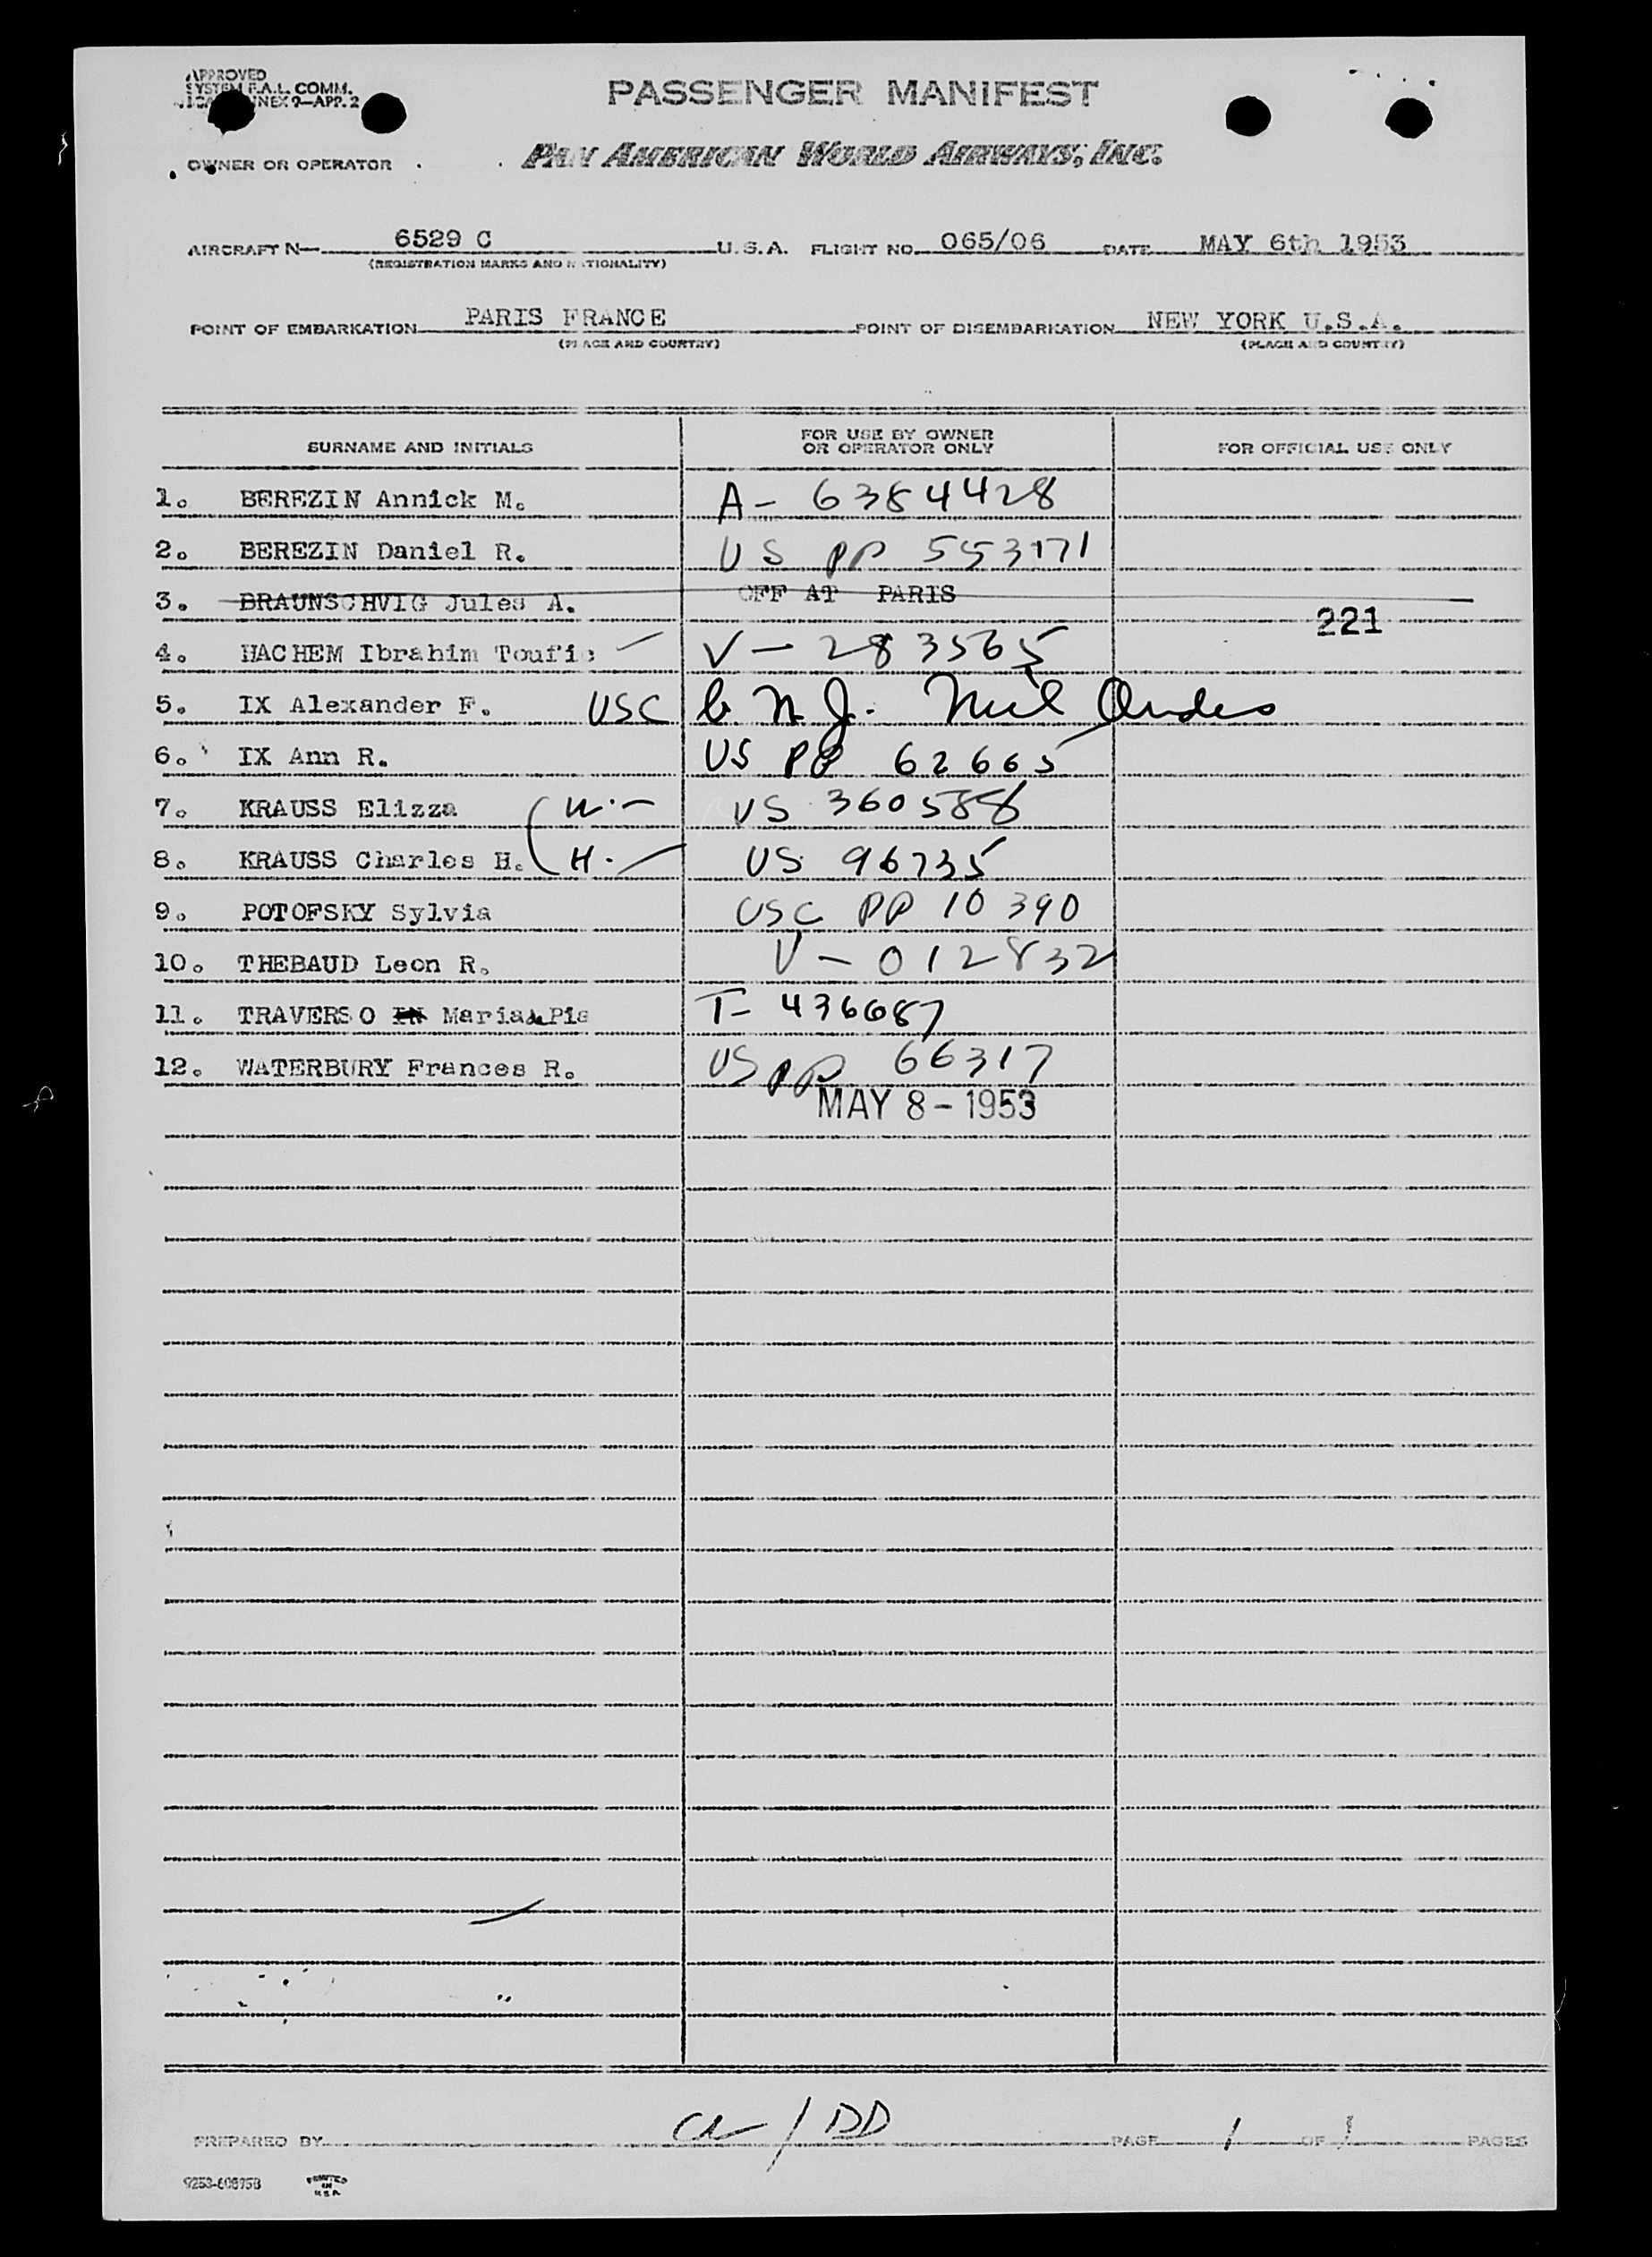 APPROVED
SYSTEM F.A.L. COMM.
ANNEX 9—APP. 2
PASSENGER MANIFEST
OWNER OR OPERATOR
PAN AMERICAN WORLD AIRWAYS, INC.
AIRCRAFT N— 6529 C U.S.A. FLIGHT NO. 065/06 DATE MAY 6th 1953
(REGISTRATION MARKS AND NATIONALITY)
POINT OF EMBARKATION PARIS FRANCE POINT OF DISEMBARKATION NEW YORK U.S.A.
(PLACE AND COUNTRY) (PLACE AND COUNTRY)
SURNAME AND INITIALS FOR USE BY OWNER OR OPERATOR ONLY FOR OFFICIAL USE ONLY
1. BEREZIN Annick M. A- 6384428
2. BEREZIN Daniel R. US PP 553171
3. BRAUNSCHVIG Jules A. OFF AT PARIS
221
4. HACHEM Ibrahim Toufic V- 283565
5. IX Alexander F. USC b. N.J.
6. IX Ann R. US PP 62665
7. KRAUSS Elizza W.- US 360588
8. KRAUSS Charles H. H.- US 96735
9. POTOFSKY Sylvia USC PP 10390
10. THEBAUD Leon R. V- 012832
11. TRAVERSO Maria Pia T- 436687
12. WATERBURY Frances R. US PP 66317
MAY 8 - 1953
PREPARED BY / DD PAGE 1 OF 1 PAGES
PRINTED
IN
U.S.A.